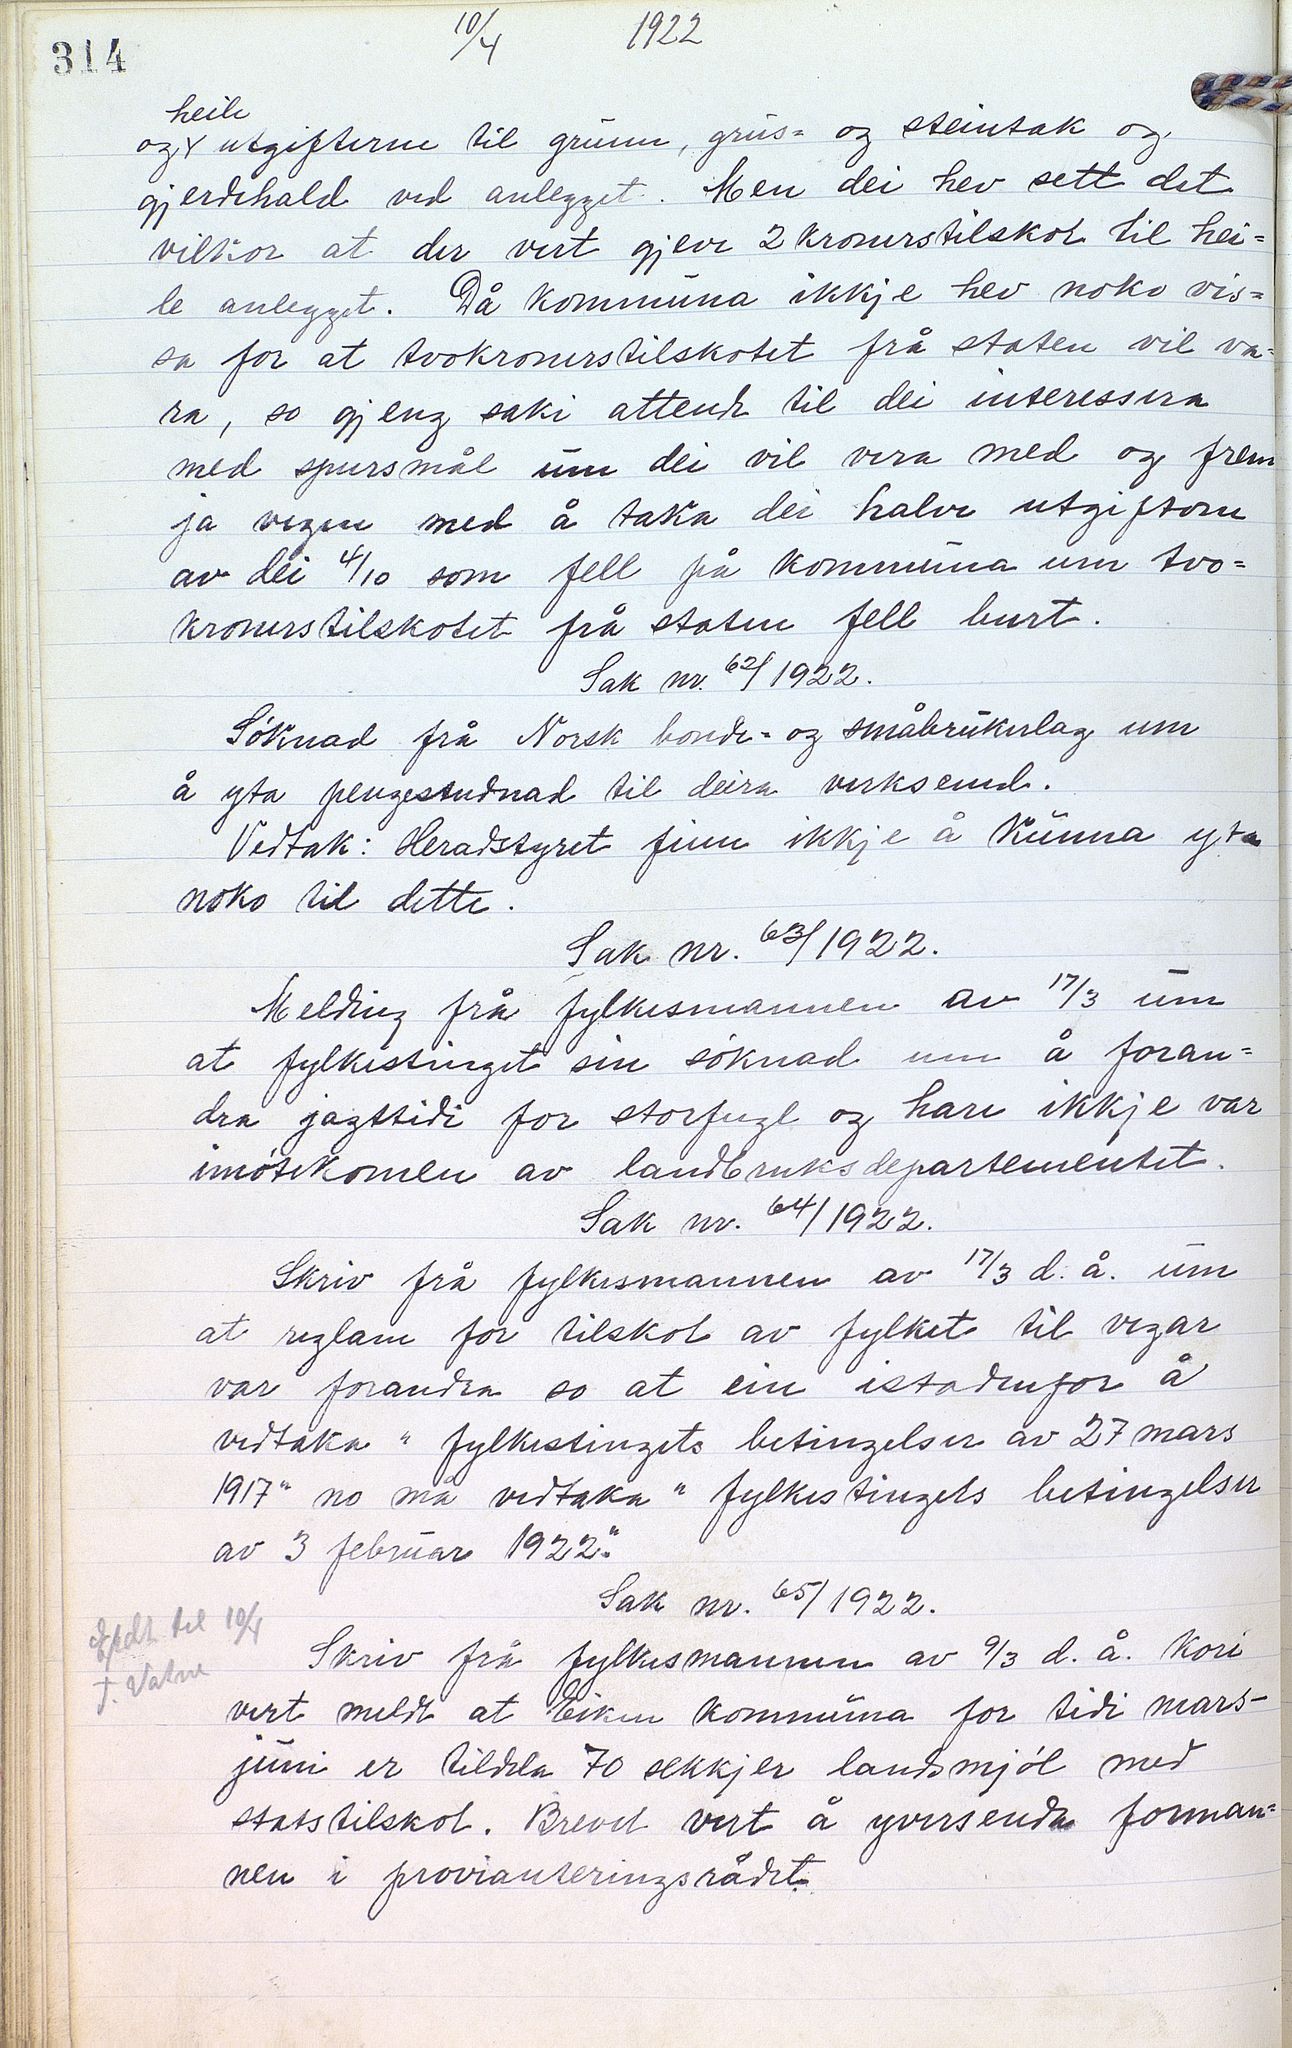 314
10/4 1922
heile
og x utgifterne til grunn, grus= og steintak og
gjerdehald ved anlegget. Men dei hev sett det
vilkor at der vert gjeve 2 kronerstilskot til hei=
le anlegget. Då kommuna ikkje hev noko vis=
sa for at tvokronerstilskotet frå staten vil va=
ra, so gjeng saki attende til dei interessera
med spursmål um dei vil vera med og frem
ja vegen med å taka dei halve utgiftom
av dei 4/10 som fell på kommuna um tvo=
kronerstilskotet frå staten fell burt.
Sak nr. 62/1922.
Söknad frå Norsk bonde= og småbrukerlag um
å yta pengestudnad til deira verksemd.
Vedtak: Heradstyret finn ikkje å kunna yta
noko til dette.
Sak nr. 63/1922.
Melding frå fylkesmannen av 17/3 um
at fylkestinget sin söknad um å foran=
dra jagttidi for storfugl og hare ikkje var
imötekomen av landbruksdepartementet.
Sak nr. 64/1922.
Skriv frå fylkesmannen av 17/3 d. å. um
at reglane for tilskot av fylket til vegar
var forandra so at ein istadenfor å
vedtaka "fylkestingets betingelser av 27 mars
1917" no må vedtaka "fylkestingets betingelser
av 3 februar 1922".
Sak nr. 65/1922.
Expdt. til 10/4
T. Vatne
Skriv frå fylkesmannen av 9/3 d. å. kori
vert meldt at Eiken kommuna for tidi mars-
juni er tildela 70 sekkjer landsmjöl med
statstilskot. Brevet vert å yversenda forman=
nen i provianteringsrådet.